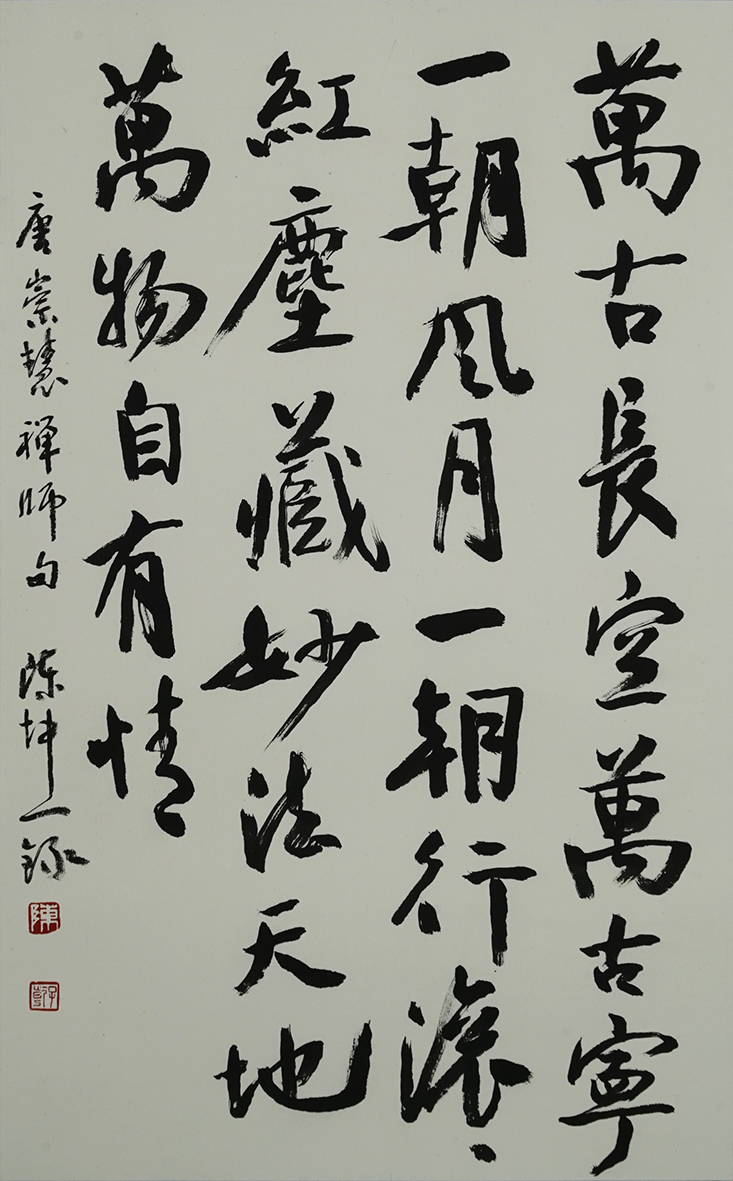 萬古長空萬古寧
一朝風月一朝行滾、
紅塵藏妙法天地
萬物自有情
唐崇慧禅師句 陳坤一錄
陳